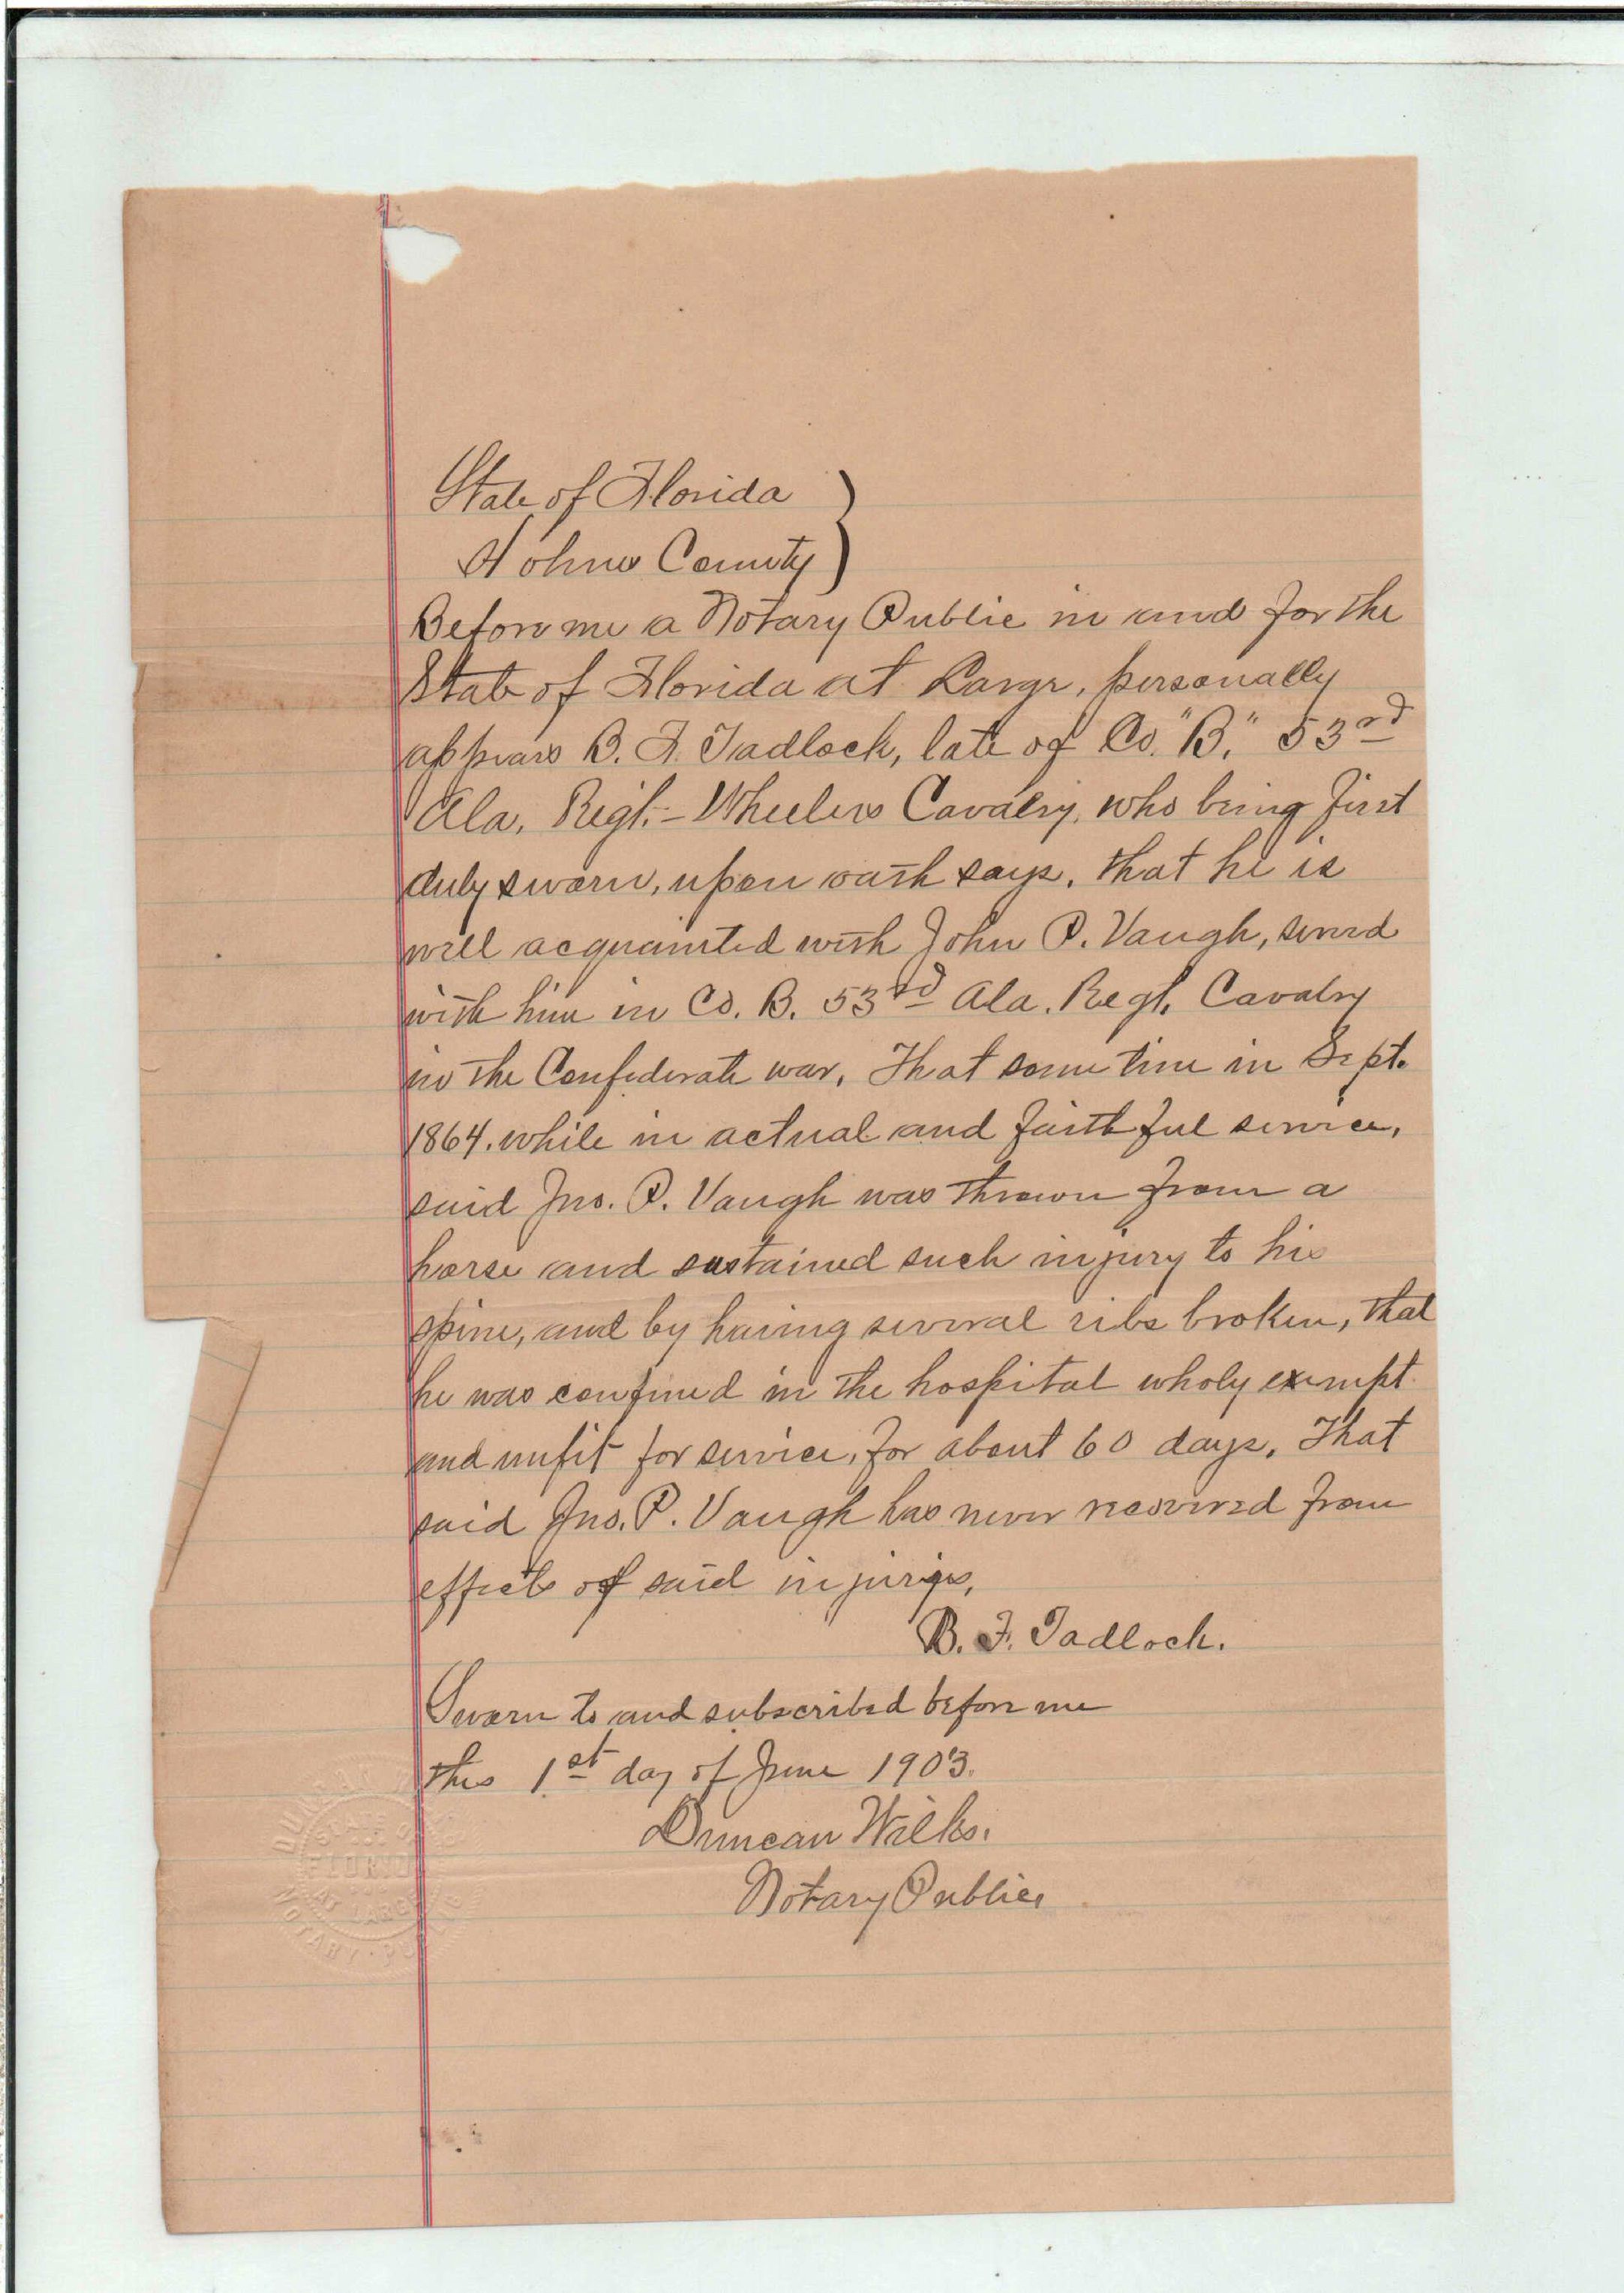 State of Florida
St Johns County
Before me a Notary Public in and for the
State of Florida at Large, personally
appears B. F. Tadlock, late of Co. "B." 53rd
Ala. Regt. - Wheelers Cavalry, who being first
duly sworn, upon oath says, that he is
well acquainted with John P. Vaugh, served
with him in Co. B. 53rd Ala. Regt. Cavalry
in the Confederate war, That some time in Sept.
1864. while in actual and faithful service,
said Jno. P. Vaugh was thrown from a
horse and sustained such injury to his
spine, and by having several ribs broken, that
he was confined in the hospital wholy exempt
and unfit for service, for about 60 days, That
said Jno. P. Vaugh has never recovered from
effects of said injuries,
B. F. Tadlock.
Sworn to and subscribed before me
this 1st day of June 1903.
Duncan Wilks.
Notary Public,
DUNCAN
STATE OF
FLORIDA
AT LARGE
NOTARY · PUBLIC